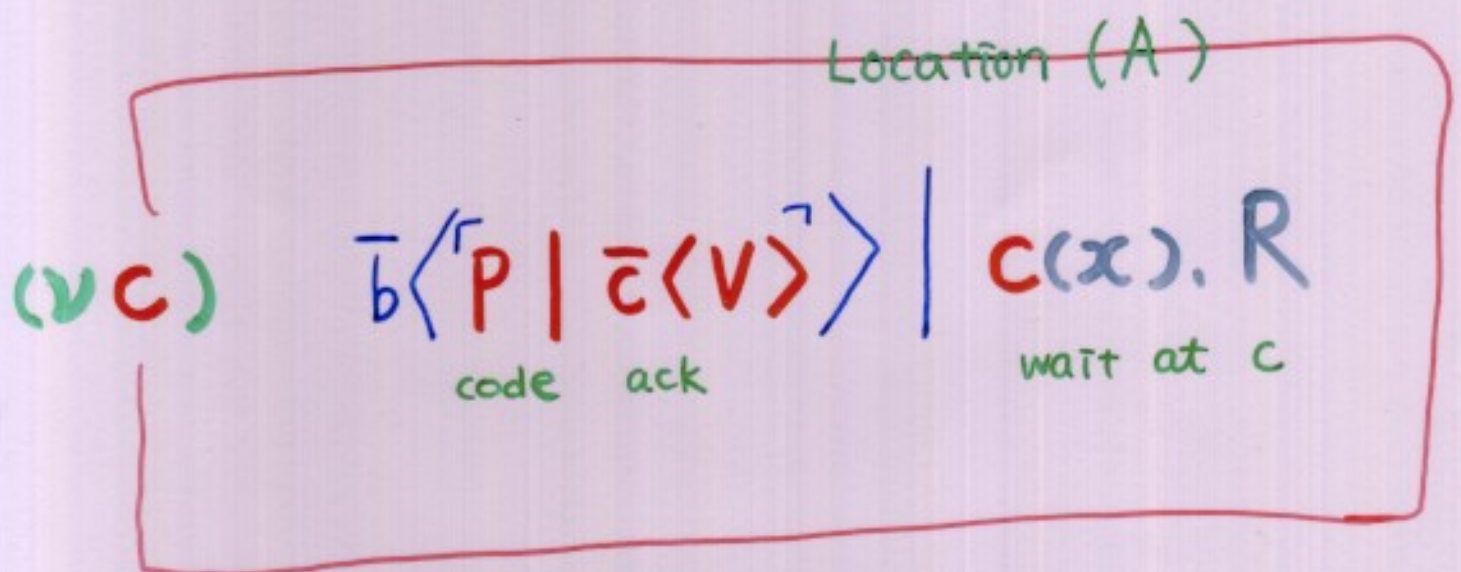 Location (A)
(ν c) b̄⟨⌜P | c̄⟨V⟩⌝⟩ | c(x). R
code ack wait at c